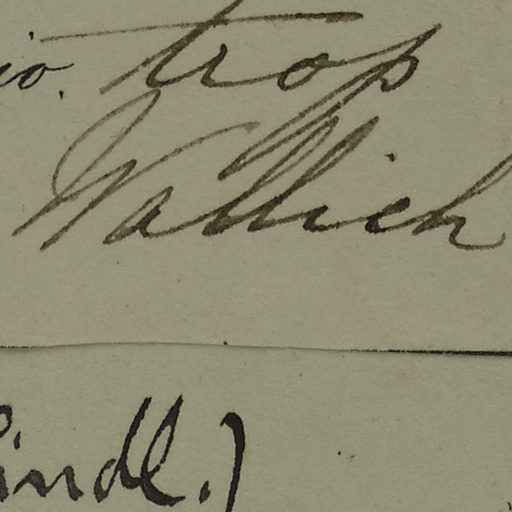 io. trop
Wallich
Lindl.)